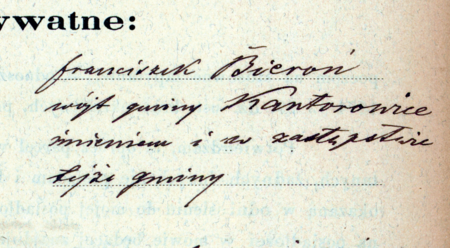 ywatne:
franciszek Bieroń
wójt gminy Kantorowice
imieniem i w zastępstwie
tejże gminy